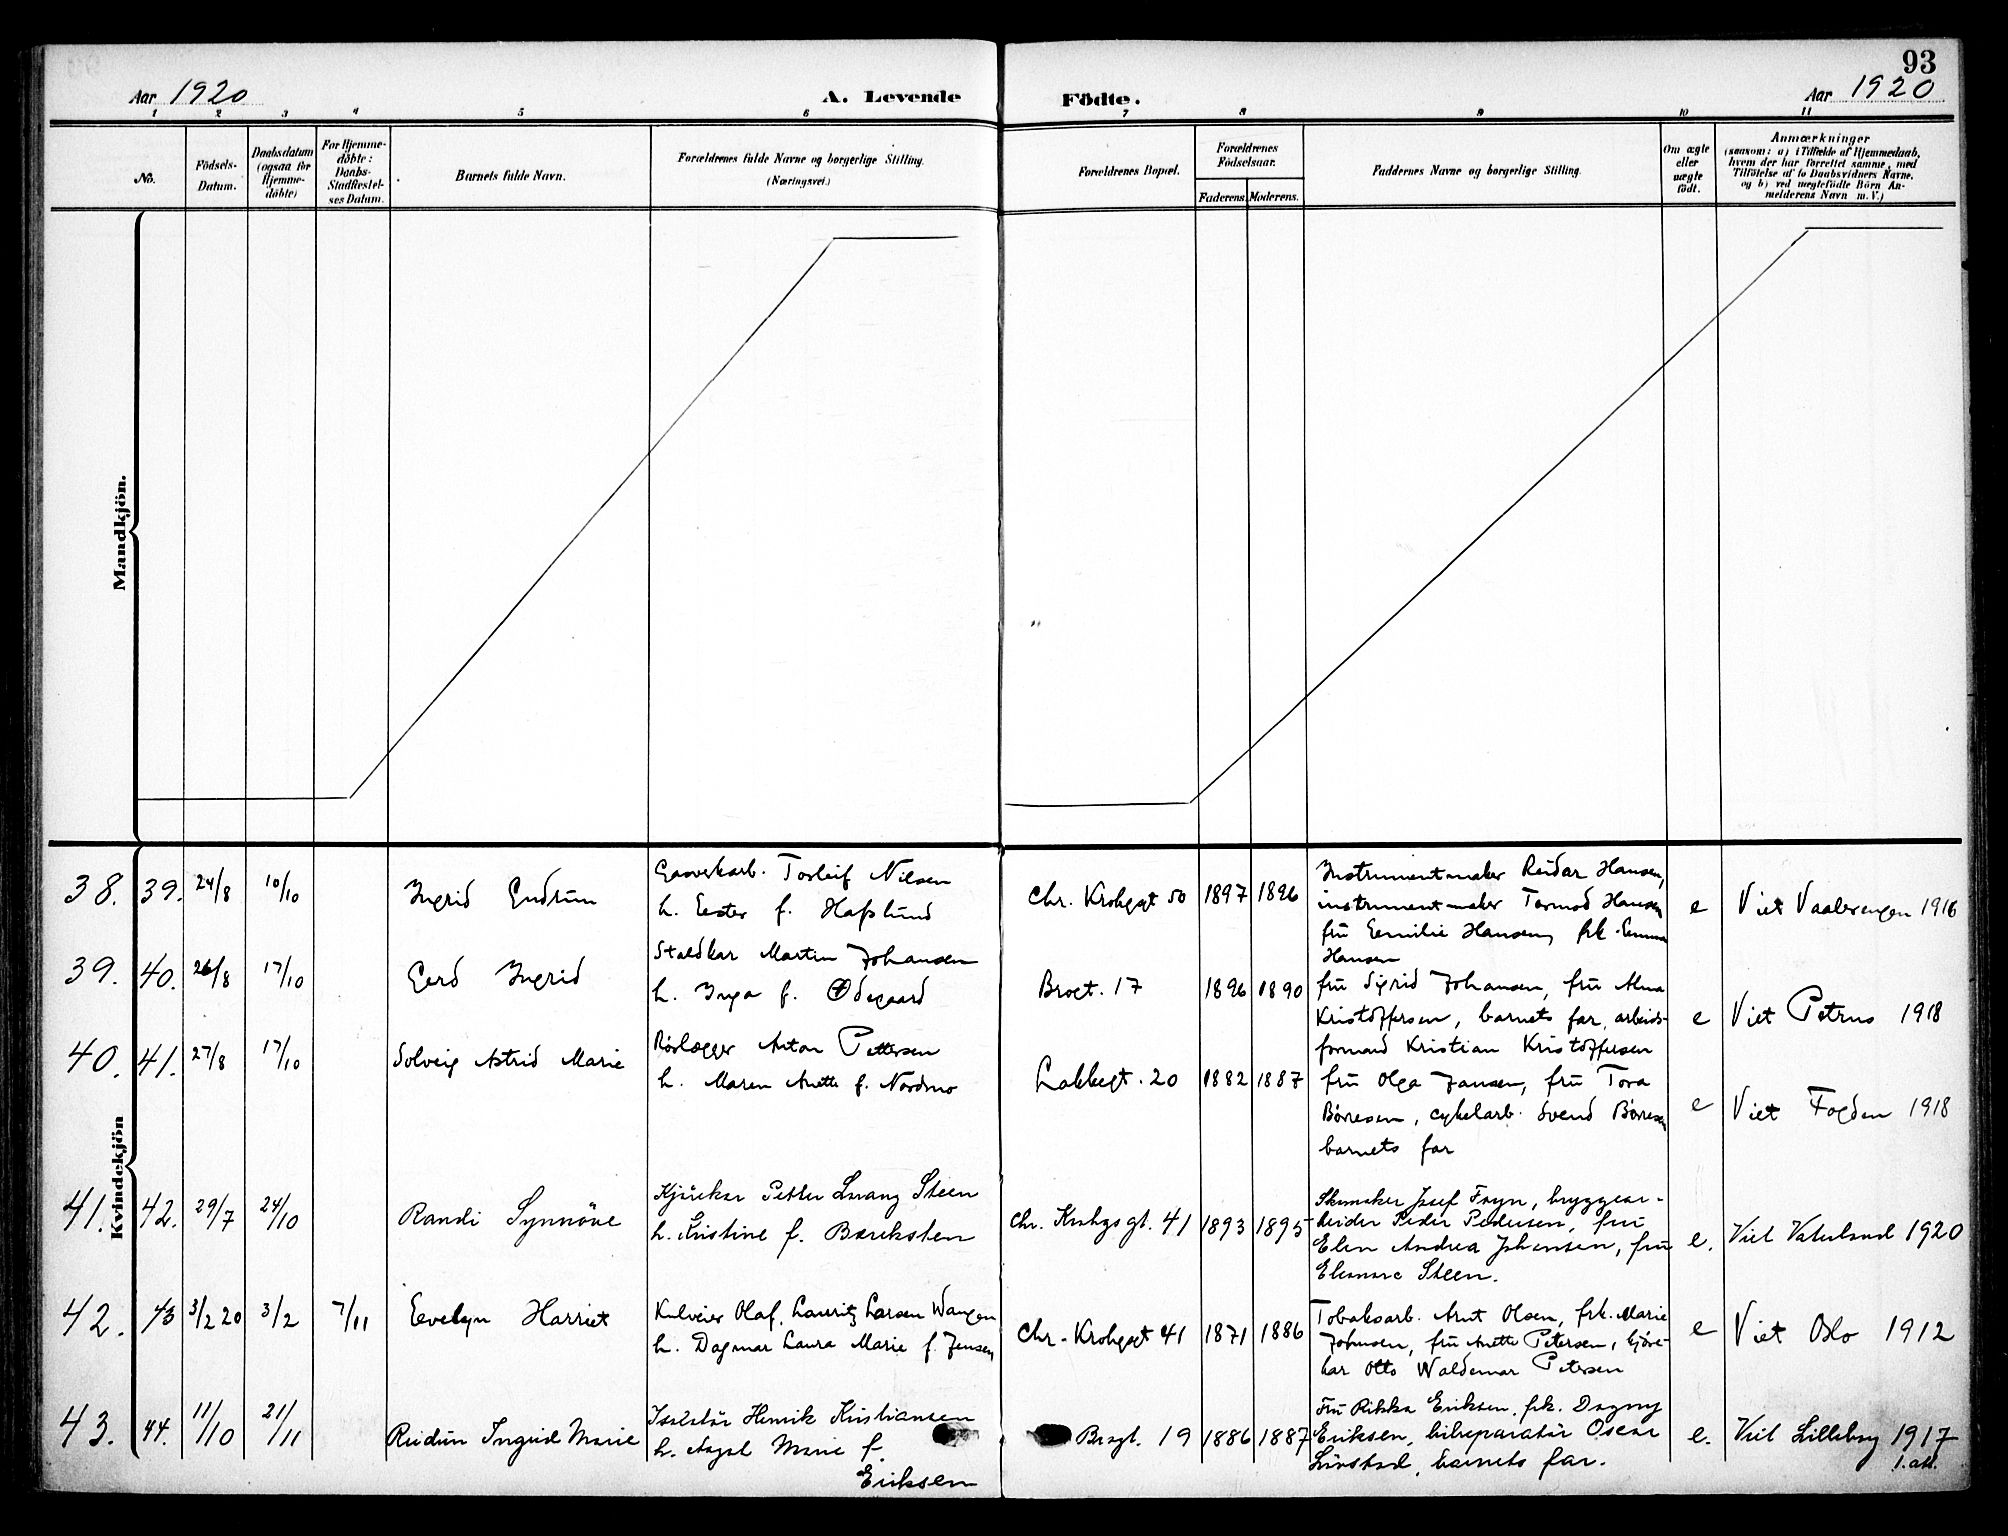 93
Aar 1920
A. Levende
Födte.
Aar 1920
1 2 3 4 5 6 7 8 9 10 11
No.
Födsels-
Datum.
Daabsdatum
(ogsaa for
Hjemme-
döbte)
For Hjemme-
döbte:
Daabs-
Stadfæstel-
ses Datum.
Barnets fulde Navn.
Forældrenes fulde Navne og borgerlige Stilling.
(Næringsvei.)
Forældrenes Bopæl.
Forældrenes
Födselsaar.
Faderens. Moderens.
Faddernes Navne og borgerlige Stilling.
Om ægte
eller
uægte
födt.
Anmærkninger
(saasom: a) i Tilfælde af Hjemmedaab,
hvem der har forrettet samme, med
Tilföielse af to Daabsvidners Navne,
og b) ved uægtefödte Börn An-
melderens Navn m. V.)
Mandkjön.
Kvindekjön
38. 39. 24/8 10/10
Ingrid Gudrun
Gasverkarb. Torleif Nilsen
h. Ester f. Hafslund
Chr. Krohgsgt 50 1897 1896
Instrumentmaker Reidar Hansen,
instrumentmaker Tormod Hansen
fru Emilie Hansen, frk. Emma
Hansen
e Viet Vaalerengen 1916
39. 40. 26/8 17/10
Gerd Ingrid
Staldkar Martin Johansen
h. Inga f. Ødegaard
Brogt. 17 1896 1890
fru Sigrid Johansen, fru Alma
Kristoffersen, barnets far, arbeids-
formand Kristian Kristoffersen
e Viet Petrus 1918
40. 41. 27/8 17/10
Solveig Astrid Marie
Rørlægger Anton Pettersen
h. Maren Anette f. Nordmo
Lakkegt. 20 1882 1887
fru Olga Jansen, fru Tora
Børresen, cykelarb. Svend Børresen
barnets far
e Viet Fogden 1918
41. 42. 29/7 24/10
Randi Synnöve
Kjörekar Petter Steen
h. Kristine f.
Chr. Krohgs gt. 41 1893 1895
Skomaker Josef bryggear-
beider Peder Pedersen, fru
Elen Andrea Johansen, fru
Eleonore Steen.
e. Viet Vaterland 1920
42. 43 3/2 20 3/2 7/11
Evelyn Harriet
Olaf Lauritz Larsen Wangen
h. Dagmar Laura Marie f. Jensen
Chr. Krohgsgt 41 1871 1886
Tobaksarb. Arnt Olsen, frk. Marie
Johnsen, fru Anette Petersen, kjøre-
kar Otto Waldemar Petersen
e Viet Oslo 1912
43. 44. 11/10 21/11
Reidun Ingrid Marie
Isolatör Henrik Kristiansen
h. Marie f.
Eriksen
Brogt. 19 1886 1887
Fru Rikka Eriksen, frk. Dagny
Eriksen, bilreparatör Oscar
barnets far.
e. Viet Lilleborg 1917
1. att.